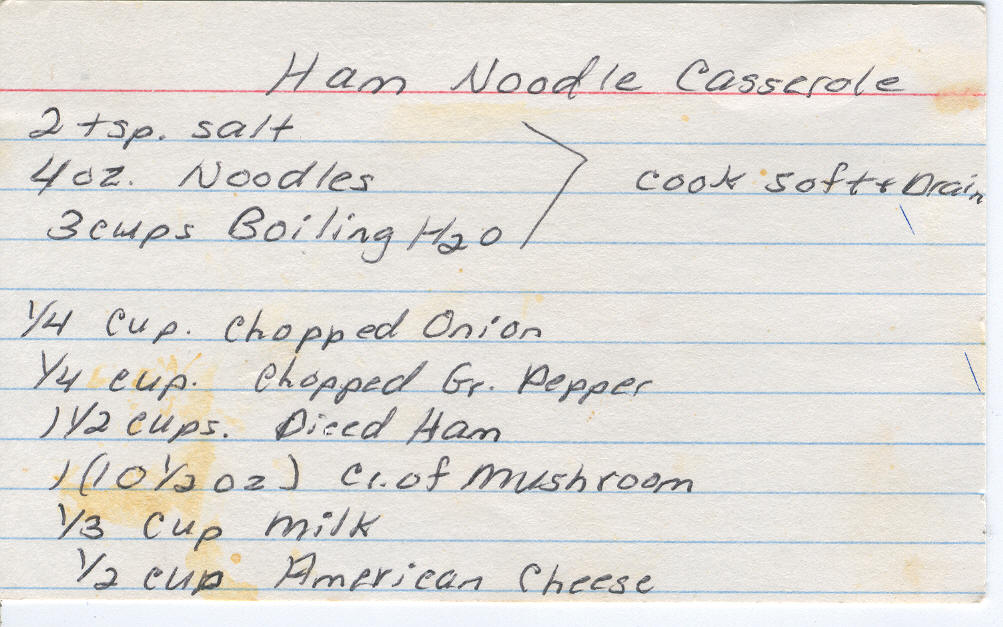 Ham Noodle Casserole
2 tsp. salt
4 oz. Noodles
3 cups Boiling H2O
cook soft & Drain
1/4 cup. Chopped Onion
1/4 cup. Chopped Gr. Pepper
1 1/2 cups. Diced Ham
1 (10 1/2 oz) Cr. of Mushroom
1/3 cup Milk
1/2 cup American Cheese